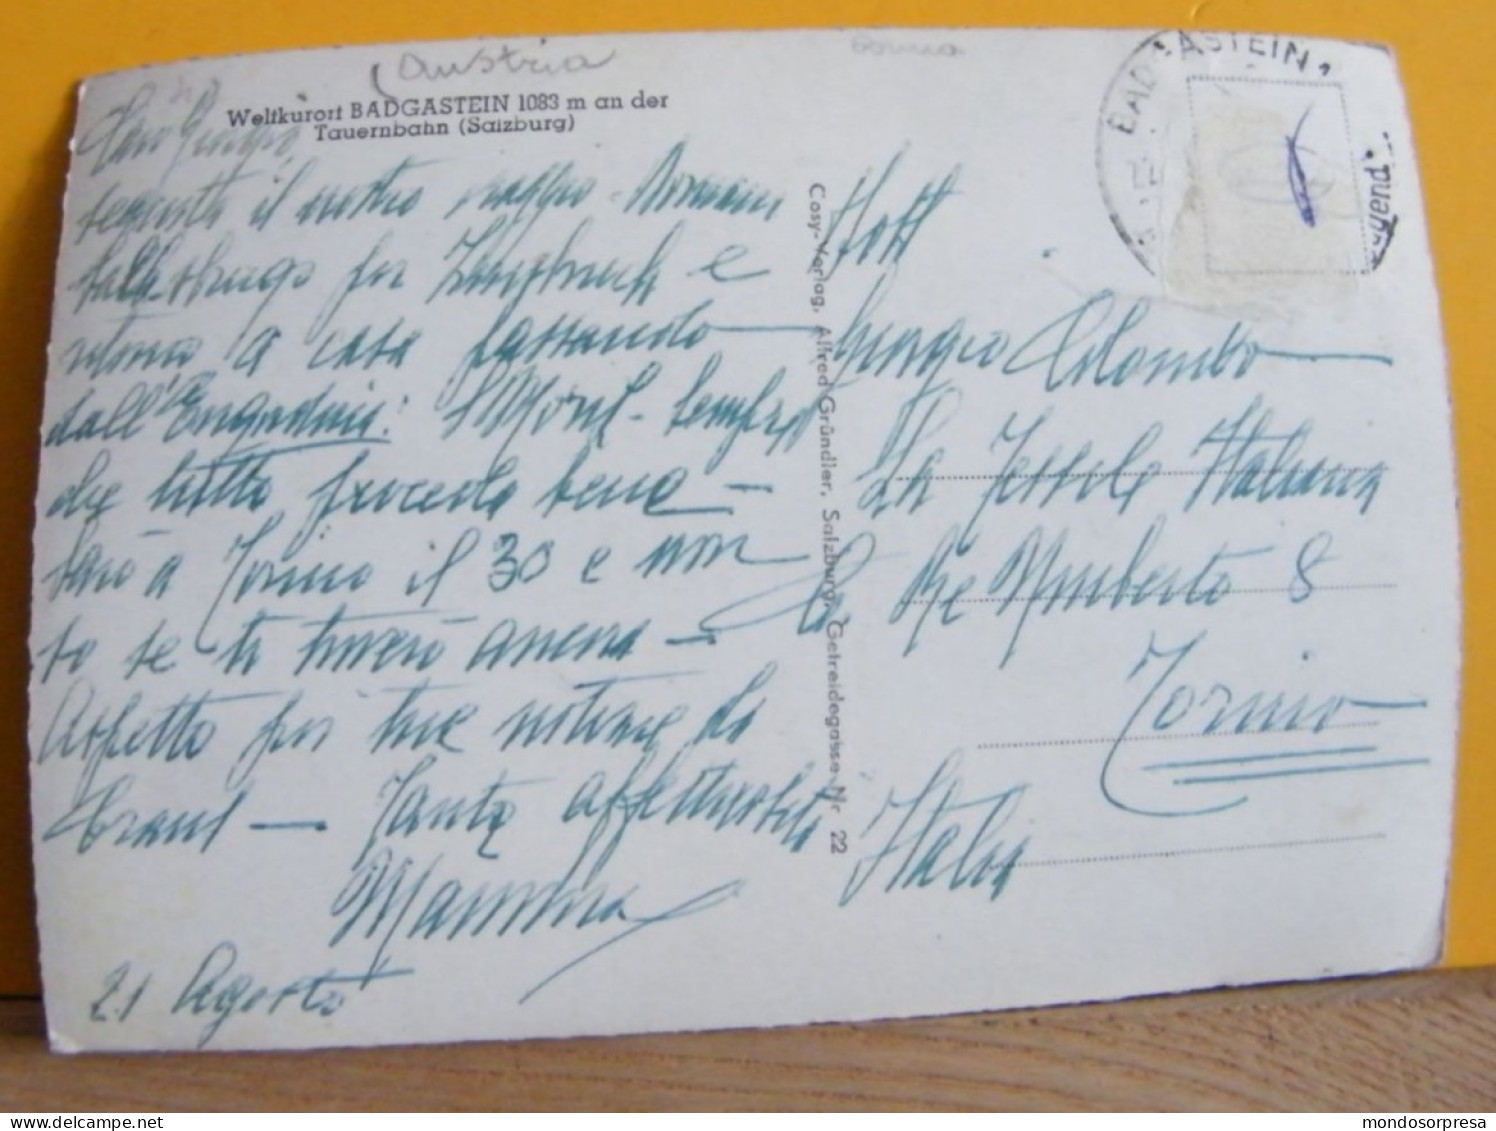 Austria
Weltkurort BADGASTEIN 1083 m an der
Tauernbahn (Salzburg)
BADGASTEIN
Caro Giorgio,
il nostro viaggio
per Innsbruck e
ritorno a casa passando
dall'Engadina: St Moritz - sempre
che tutto proceda bene -
sarò a Torino il 30 e non
so se ti troverò ancora -
Aspetto per tue notizie da
- Tante affettuosità
Mamma
21 Agosto
Cosy-Verlag, Alfred Gründler, Salzburg, Getreidegasse Nr. 22
Dott
Giorgio Colombo
La Italiana
Re Umberto 8
Torino
Italia
mondosorpresa